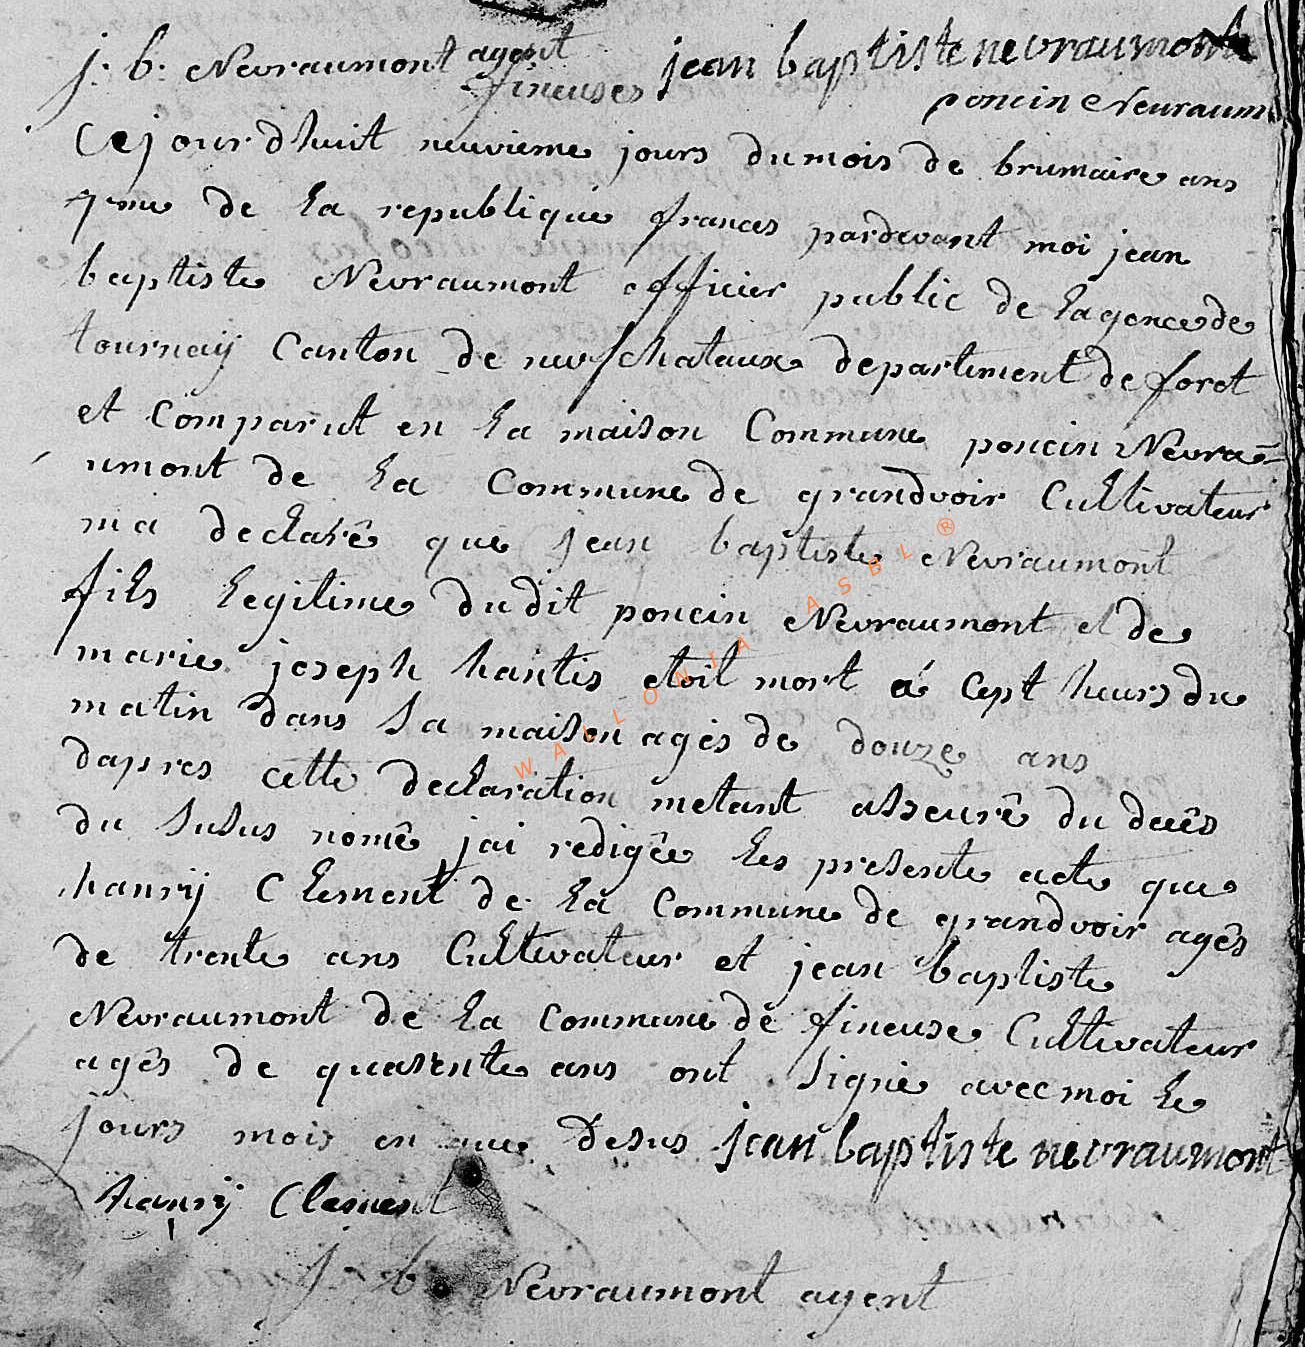 j. b. Nevraumont agent jean baptiste nevraumont
fineuses
poncin Nevraum
Cejourdhuit neuvieme jours du mois de brumaire ans
7me de la republique frances pardevant moi jean
baptiste Nevraumont officier public de lagence de
tournaij Canton de neufchataux departement de foret
et Comparut en la maison Commune poncin Nevra=
umont de la Commune de grandvoir Cultivateur
ma declarê que jean baptiste Nevraumont
fils legitime dudit poncin Nevraumont et de
marie joseph hantis etoit mort á cept heurs du
matin dans sa maison agés de douze ans
dapres cette declaration metant asseurê du decês
du susus nomê jai redigée les presente acte que
hanrij Clement de la Commune de grandvoir agês
de trente ans Cultivateur et jean baptiste
Nevraumont de la Commune de fineuse Cultivateur
agês de quarente ans ont signé avec moi le
jours mois en que desus jean baptiste nevraumont
hanrij Clement
j. b. Nevraumont agent
WALLONIA ASBL ®